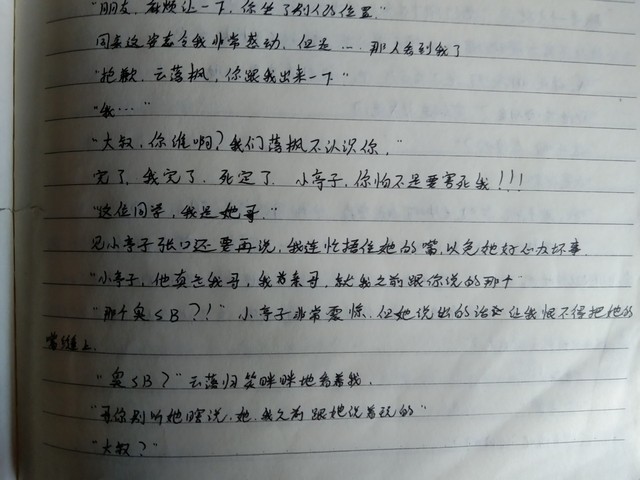 "朋友，麻烦让一下，你坐了别人的位置."
同桌这姿态令我非常感动，但是…，那人看到我了
"抱歉，云落枫，你跟我出来一下"
"我…"
"大叔，你谁啊？我们落枫不认识你，"
完了，我完了，死定了，小亭子，你怕不是要害死我！！！
"这位同学，我是她哥."
见小亭子张口还要再说，我连忙捂住她的嘴，以免她好心办坏事
"小亭子，他真是我哥，我亲哥，就我之前跟你说的那个"
"那个臭SB？！"小亭子非常震惊，但她说出的话却让我恨不得把她的
嘴缝上.
"臭SB？"云落归笑眯眯地看着我.
"哥你别听她瞎说，她，我之前跟她说着玩的"
"大叔？"